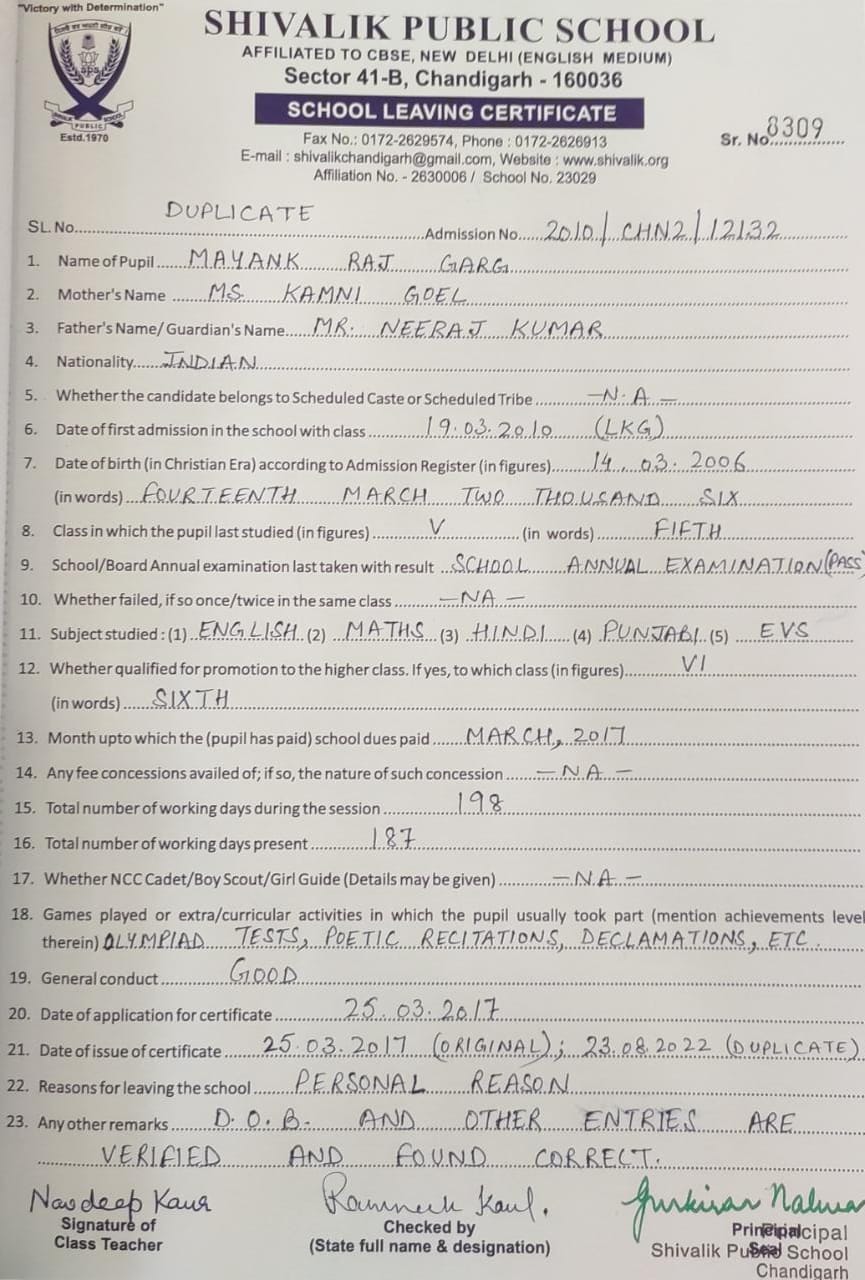 "Victory with Determination"
SHIVALIK PUBLIC SCHOOL
AFFILIATED TO CBSE, NEW DELHI (ENGLISH MEDIUM)
Sector 41-B, Chandigarh - 160036
SCHOOL LEAVING CERTIFICATE
sps
PUBLIC
Estd.1970
Fax No.: 0172-2629574, Phone : 0172-2626913
Sr. No. 8309
E-mail : shivalikchandigarh@gmail.com, Website : www.shivalik.org
Affiliation No. - 2630006 / School No. 23029
SL. No. DUPLICATE Admission No. 2010/CHN2/12132
1. Name of Pupil MAYANK RAJ GARG
2. Mother's Name MS. KAMNI GOEL
3. Father's Name/ Guardian's Name MR. NEERAJ KUMAR
4. Nationality INDIAN
5. Whether the candidate belongs to Scheduled Caste or Scheduled Tribe —N.A—
6. Date of first admission in the school with class 19.03.2010 (LKG)
7. Date of birth (in Christian Era) according to Admission Register (in figures) 14.03.2006
(in words) FOURTEENTH MARCH TWO THOUSAND SIX
8. Class in which the pupil last studied (in figures) V (in words) FIFTH
9. School/Board Annual examination last taken with result SCHOOL ANNUAL EXAMINATION (PASS)
10. Whether failed, if so once/twice in the same class —NA—
11. Subject studied : (1) ENGLISH (2) MATHS (3) HINDI (4) PUNJABI (5) EVS
12. Whether qualified for promotion to the higher class. If yes, to which class (in figures) VI
(in words) SIXTH
13. Month upto which the (pupil has paid) school dues paid MARCH, 2017
14. Any fee concessions availed of; if so, the nature of such concession —NA—
15. Total number of working days during the session 198
16. Total number of working days present 187
17. Whether NCC Cadet/Boy Scout/Girl Guide (Details may be given) —N.A—
18. Games played or extra/curricular activities in which the pupil usually took part (mention achievements level
therein) OLYMPIAD TESTS, POETIC RECITATIONS, DECLAMATIONS, ETC.
19. General conduct GOOD
20. Date of application for certificate 25.03.2017
21. Date of issue of certificate 25.03.2017 (ORIGINAL); 23.08.2022 (DUPLICATE)
22. Reasons for leaving the school PERSONAL REASON
23. Any other remarks D.O.B. AND OTHER ENTRIES ARE
VERIFIED AND FOUND CORRECT.
Navdeep Kaur Kaul. Gurkiran
Signature of Checked by Principal Principal
Class Teacher (State full name & designation) Seal Shivalik Public School
Chandigarh